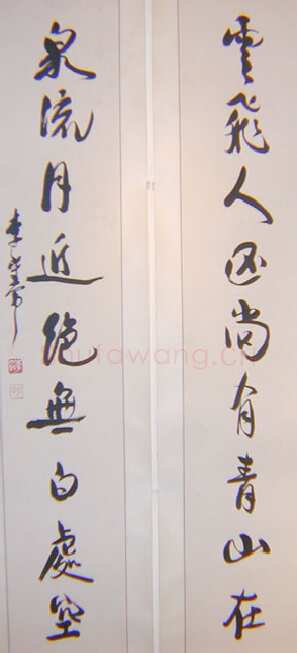 雲飛人還尚有青山在
泉流月近絕無白處塵
shufawang.cn